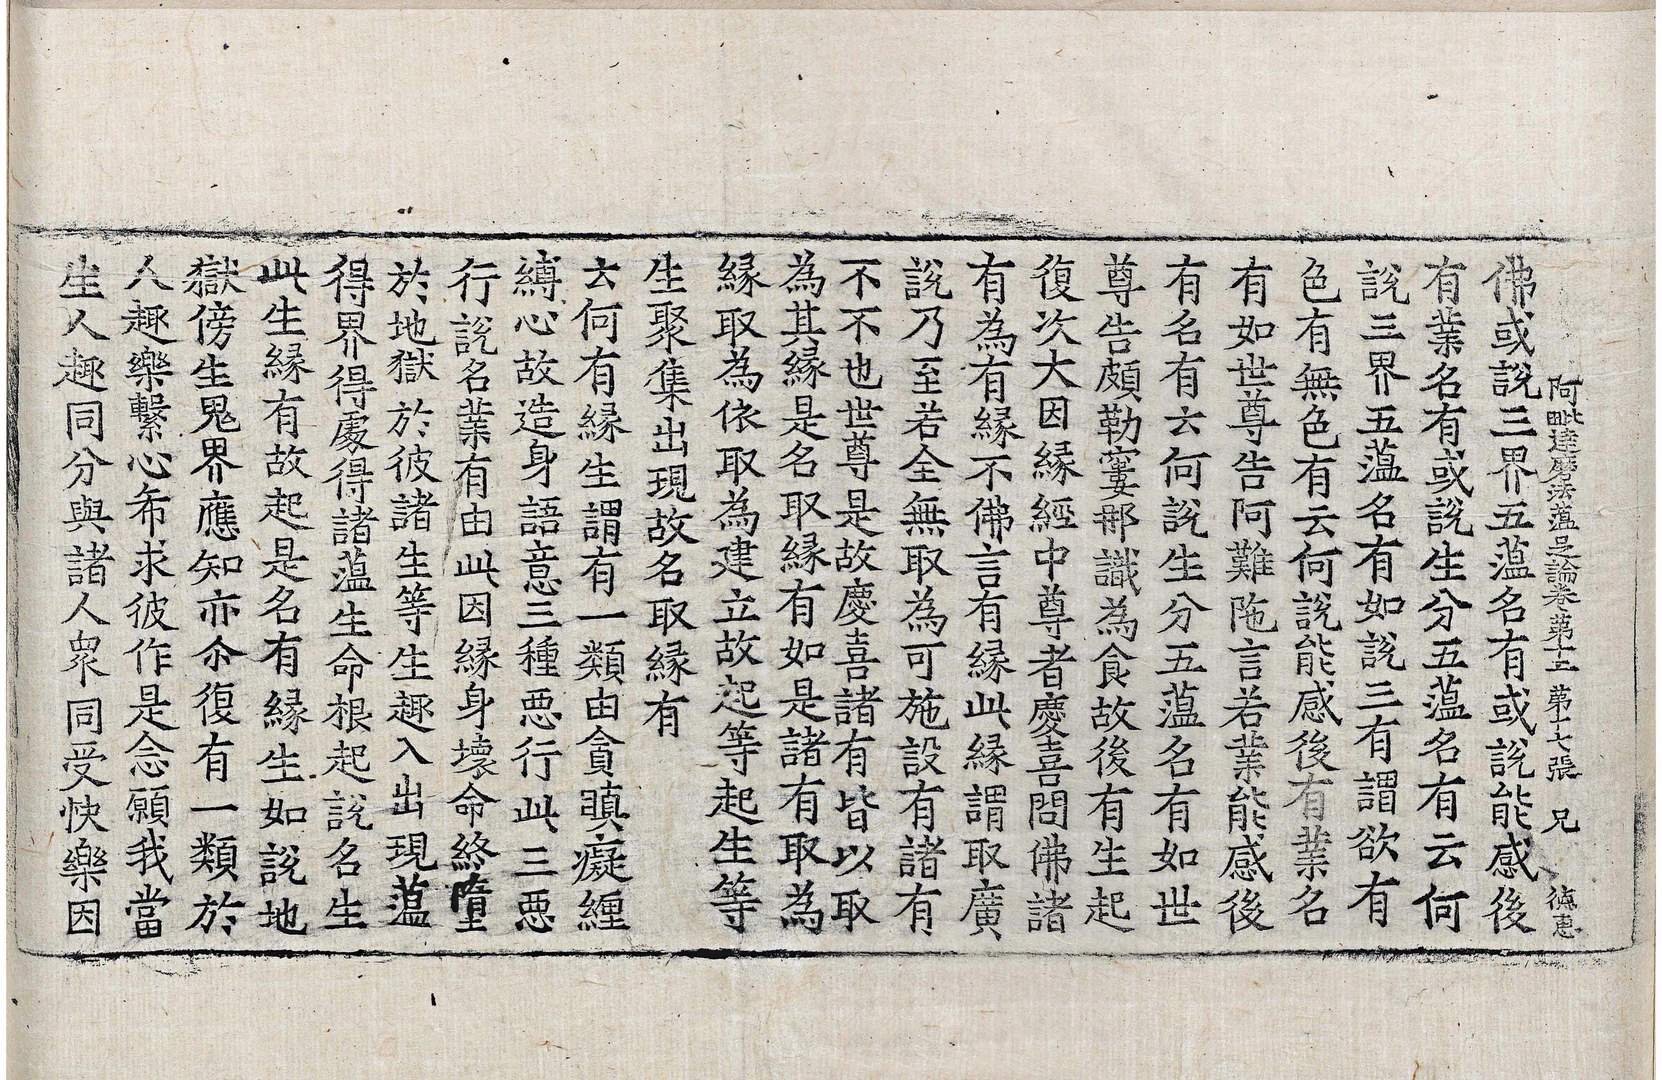 阿毗達磨法薀足論卷第十二 第十七張 兄 德惠
佛或說三界五薀名有或說能感後
有業名有或說生分五薀名有云何
說三界五薀名有如說三有謂欲有
色有無色有云何說能感後有業名
有如世尊告阿難陁言若業能感後
有名有云何說生分五薀名有如世
尊告頗勒窶那識為食故後有生起
復次大因緣經中尊者慶喜問佛諸
有為有緣不佛言有緣此緣謂取廣
說乃至若全無取為可施設有諸有
不不也世尊是故慶喜諸有皆以取
為其緣是名取緣有如是諸有取為
緣取為依取為建立故起等起生等
生聚集出現故名取緣有
云何有緣生謂有一類由貪瞋癡纏
縛心故造身語意三種惡行此三惡
行說名業有由此因緣身壞命終墮
於地獄於彼諸生等生趣入出現薀
得界得處得諸薀生命根起說名生
此生緣有故起是名有緣生如說地
獄傍生鬼界應知亦尒復有一類於
人趣樂繫心希求彼作是念願我當
生人趣同分與諸人衆同受快樂因